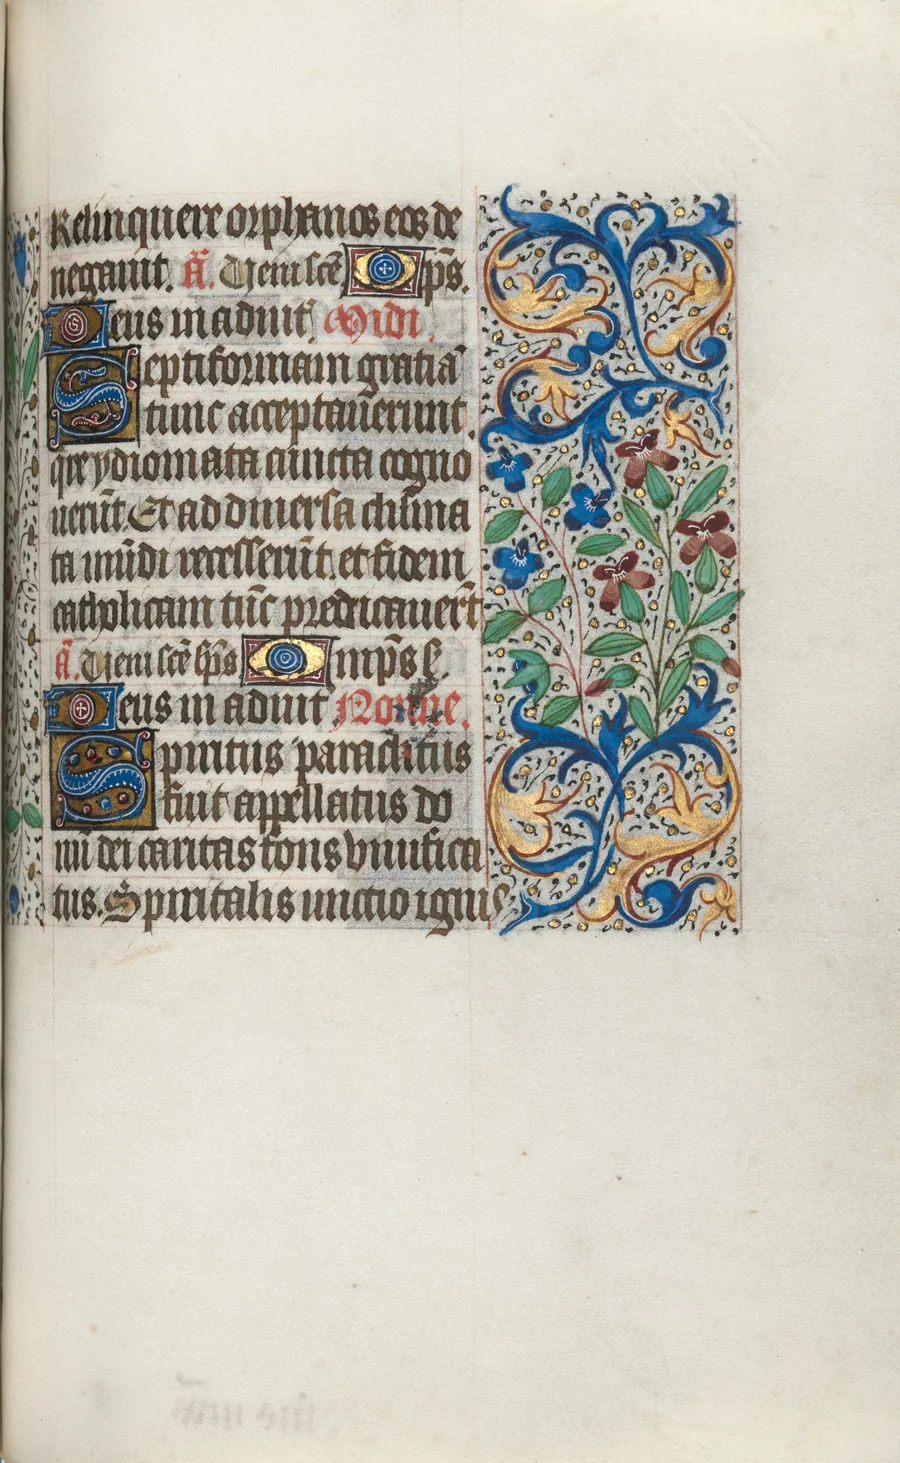 Relinquere orphanos eos de
negauit. Ã. Ueni scẽ O p̃s.
Deus in adiut' Midi.
Septiformam gratiã
tunc acceptauerunt.
q̃re ydiomata cuncta cogno
uerũt. Et ad diuersa clima
ta mũdi recesserũt. et fidem
catholicam tũc predicauer̃t
Ã. Ueni scẽ sp̃s O mp̃s
Deus in adiut Nonne.
Spiritus paraclitus
fuit appellatus do
nũ dei caritas fons viuifica
tus. Spiritalis unctio ignis